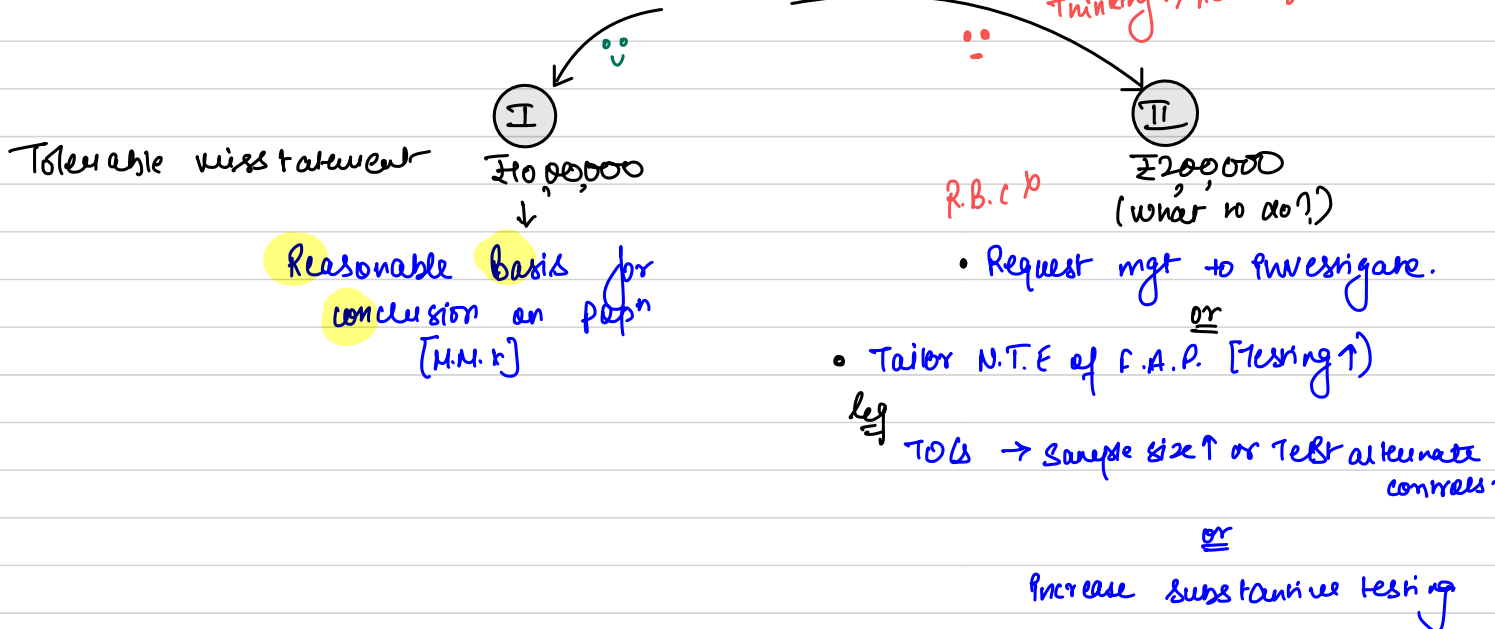 Thinking
I
II
Tolerable misstatement
₹10,00,000
₹2,00,000
R.B.C
(What to do?)
Reasonable Basis for
conclusion on popⁿ
• Request mgt to investigate.
or
• Tailor N.T.E of F.A.P. [Testing ↑)
eg
TOCs → Sample size ↑ or Test alternate
controls.
or
Increase substantive testing